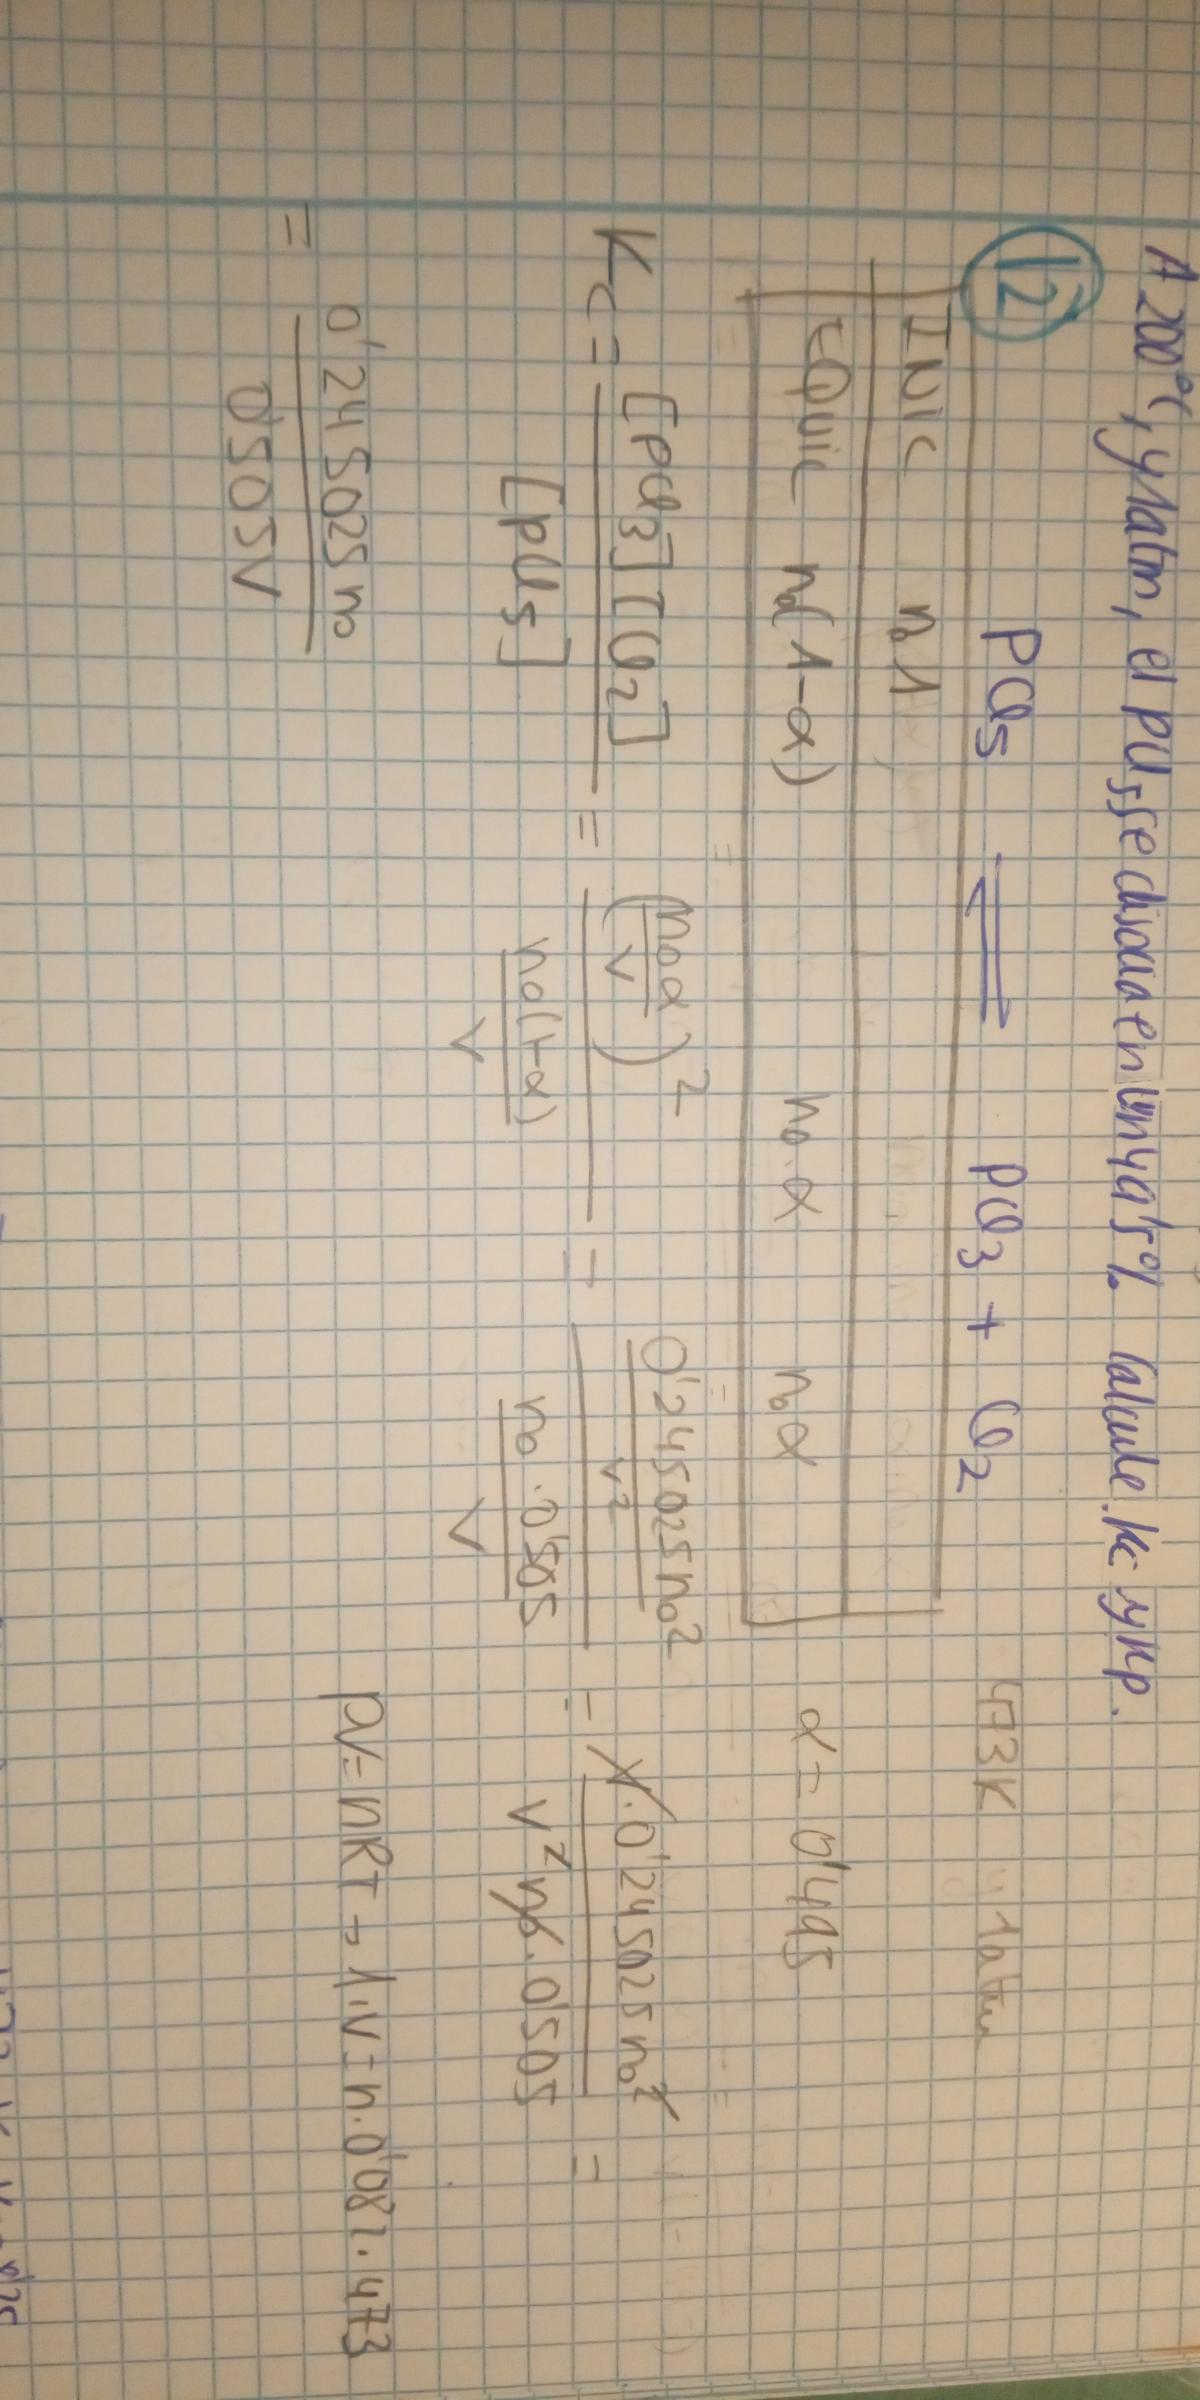 A 200ºC, y 1atm, el PCl5 se disocia en un 49'5% Calcule Kc y Kp.
12 PCl5 ⇌ PCl3 + Cl2 473K y 1atm
INIC n0 1
EQUIC n0(1-α) n0·α n0α α = 0'495
Kc = [PCl3][Cl2] / [PCl5] = (n0α / V)² / (n0(1-α) / V) = (0'245025n0² / V²) / (n0·0'505 / V) = V·0'245025n0² / V²n0·0'505 =
= 0'245025n0 / 0'505V PV=nRT → 1·V=n·0'082·473